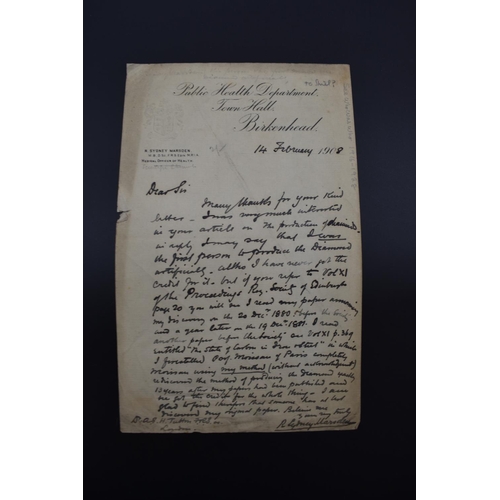 Public Health Department.
Town Hall.
Birkenhead.
R. SYDNEY MARSDEN
MEDICAL OFFICER OF HEALTH
14 February 1908
Dear Sir
Many thanks for your kind
letter - I was very much interested
in your article on the production of diamonds
in reply I may say that I was
the first person to produce the Diamond
artificially - altho I have never got the
credit for it - but if you refer to Vol XI
of the Proceedings Roy. Society of Edinburgh
page 20 you will see I read my paper announcing
my discovery on the 20 Dec 1880
and a year later on the 19 Dec 1881 I read
another paper before the society see Vol XI p.
entitled "The state of Carbon in Iron
I forestalled Prof Moissan of Paris completely
Moissan using my method (without acknowledgment)
rediscovered the method of producing the diamond
years after my paper had been published and
got the credit for the whole thing - I am
glad to find therefore that someone has at last
discovered my original paper. Believe me
yours very truly
R Sydney Marsden
London